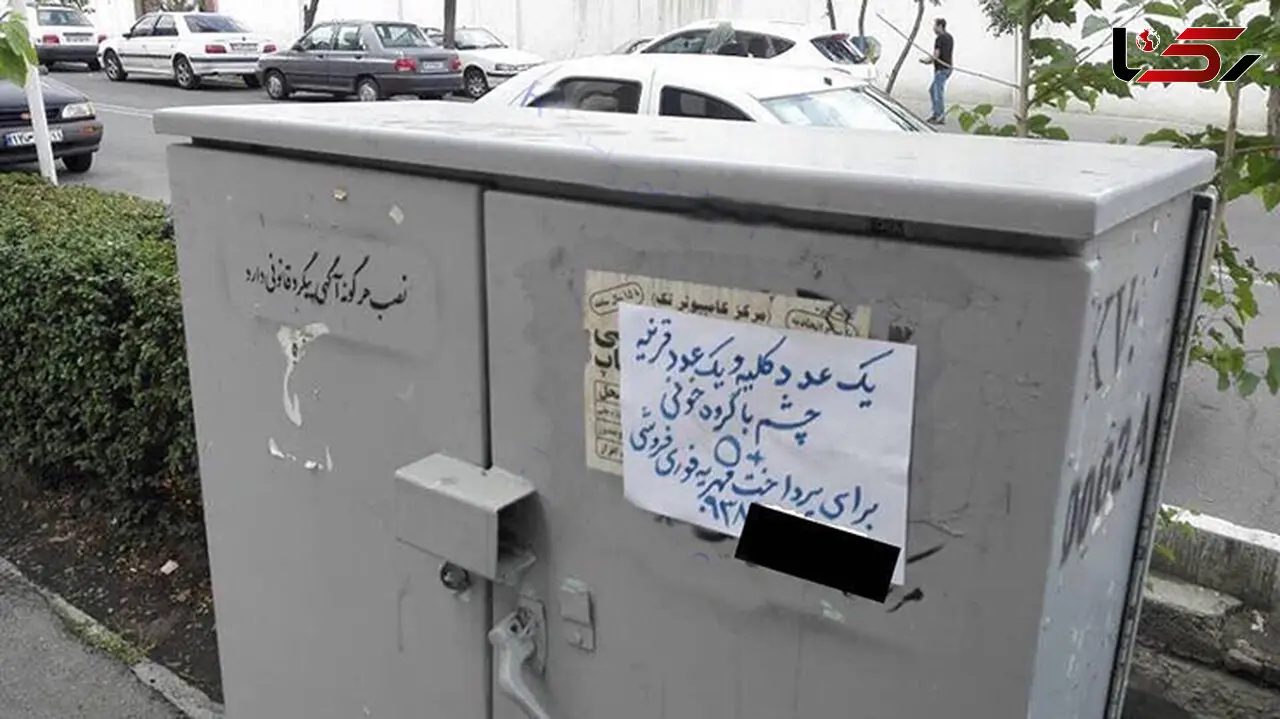 رکنا
نصب هرگونه آگهی پیگرد قانونی دارد
مرکز کامپیوتر تک
یک عدد کلیه و یک عدد قرنیه
چشم با گروه خونی
O+
برای پرداخت مهریه فوری فروشی
۰۹۳۸
KV:
D062A